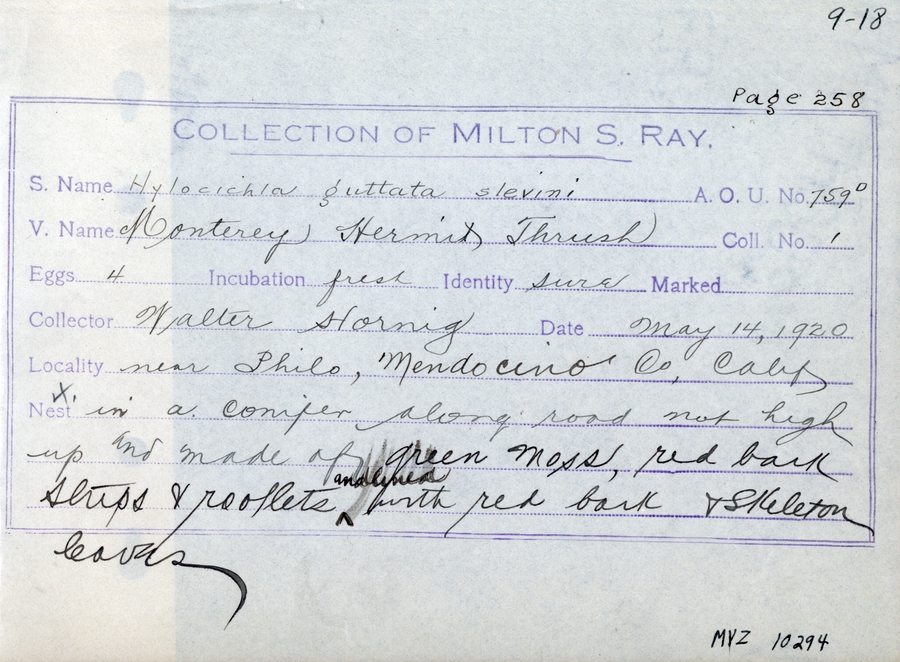 9-18
Page 258
COLLECTION OF MILTON S. RAY.
S. Name Hylocichla guttata slevini A. O. U. No. 759D
V. Name Monterey Hermit Thrush Coll. No. 1
Eggs 4 Incubation fresh Identity sure Marked
Collector Walter Hornig Date May 14, 1920
Locality near Philo, 'Mendocino' Co, Calif
X.
Nest in a conifer along road not high
up and made of green moss, red bark
strips & rootlets and lined with red bark & skeleton
leaves
MVZ 10294